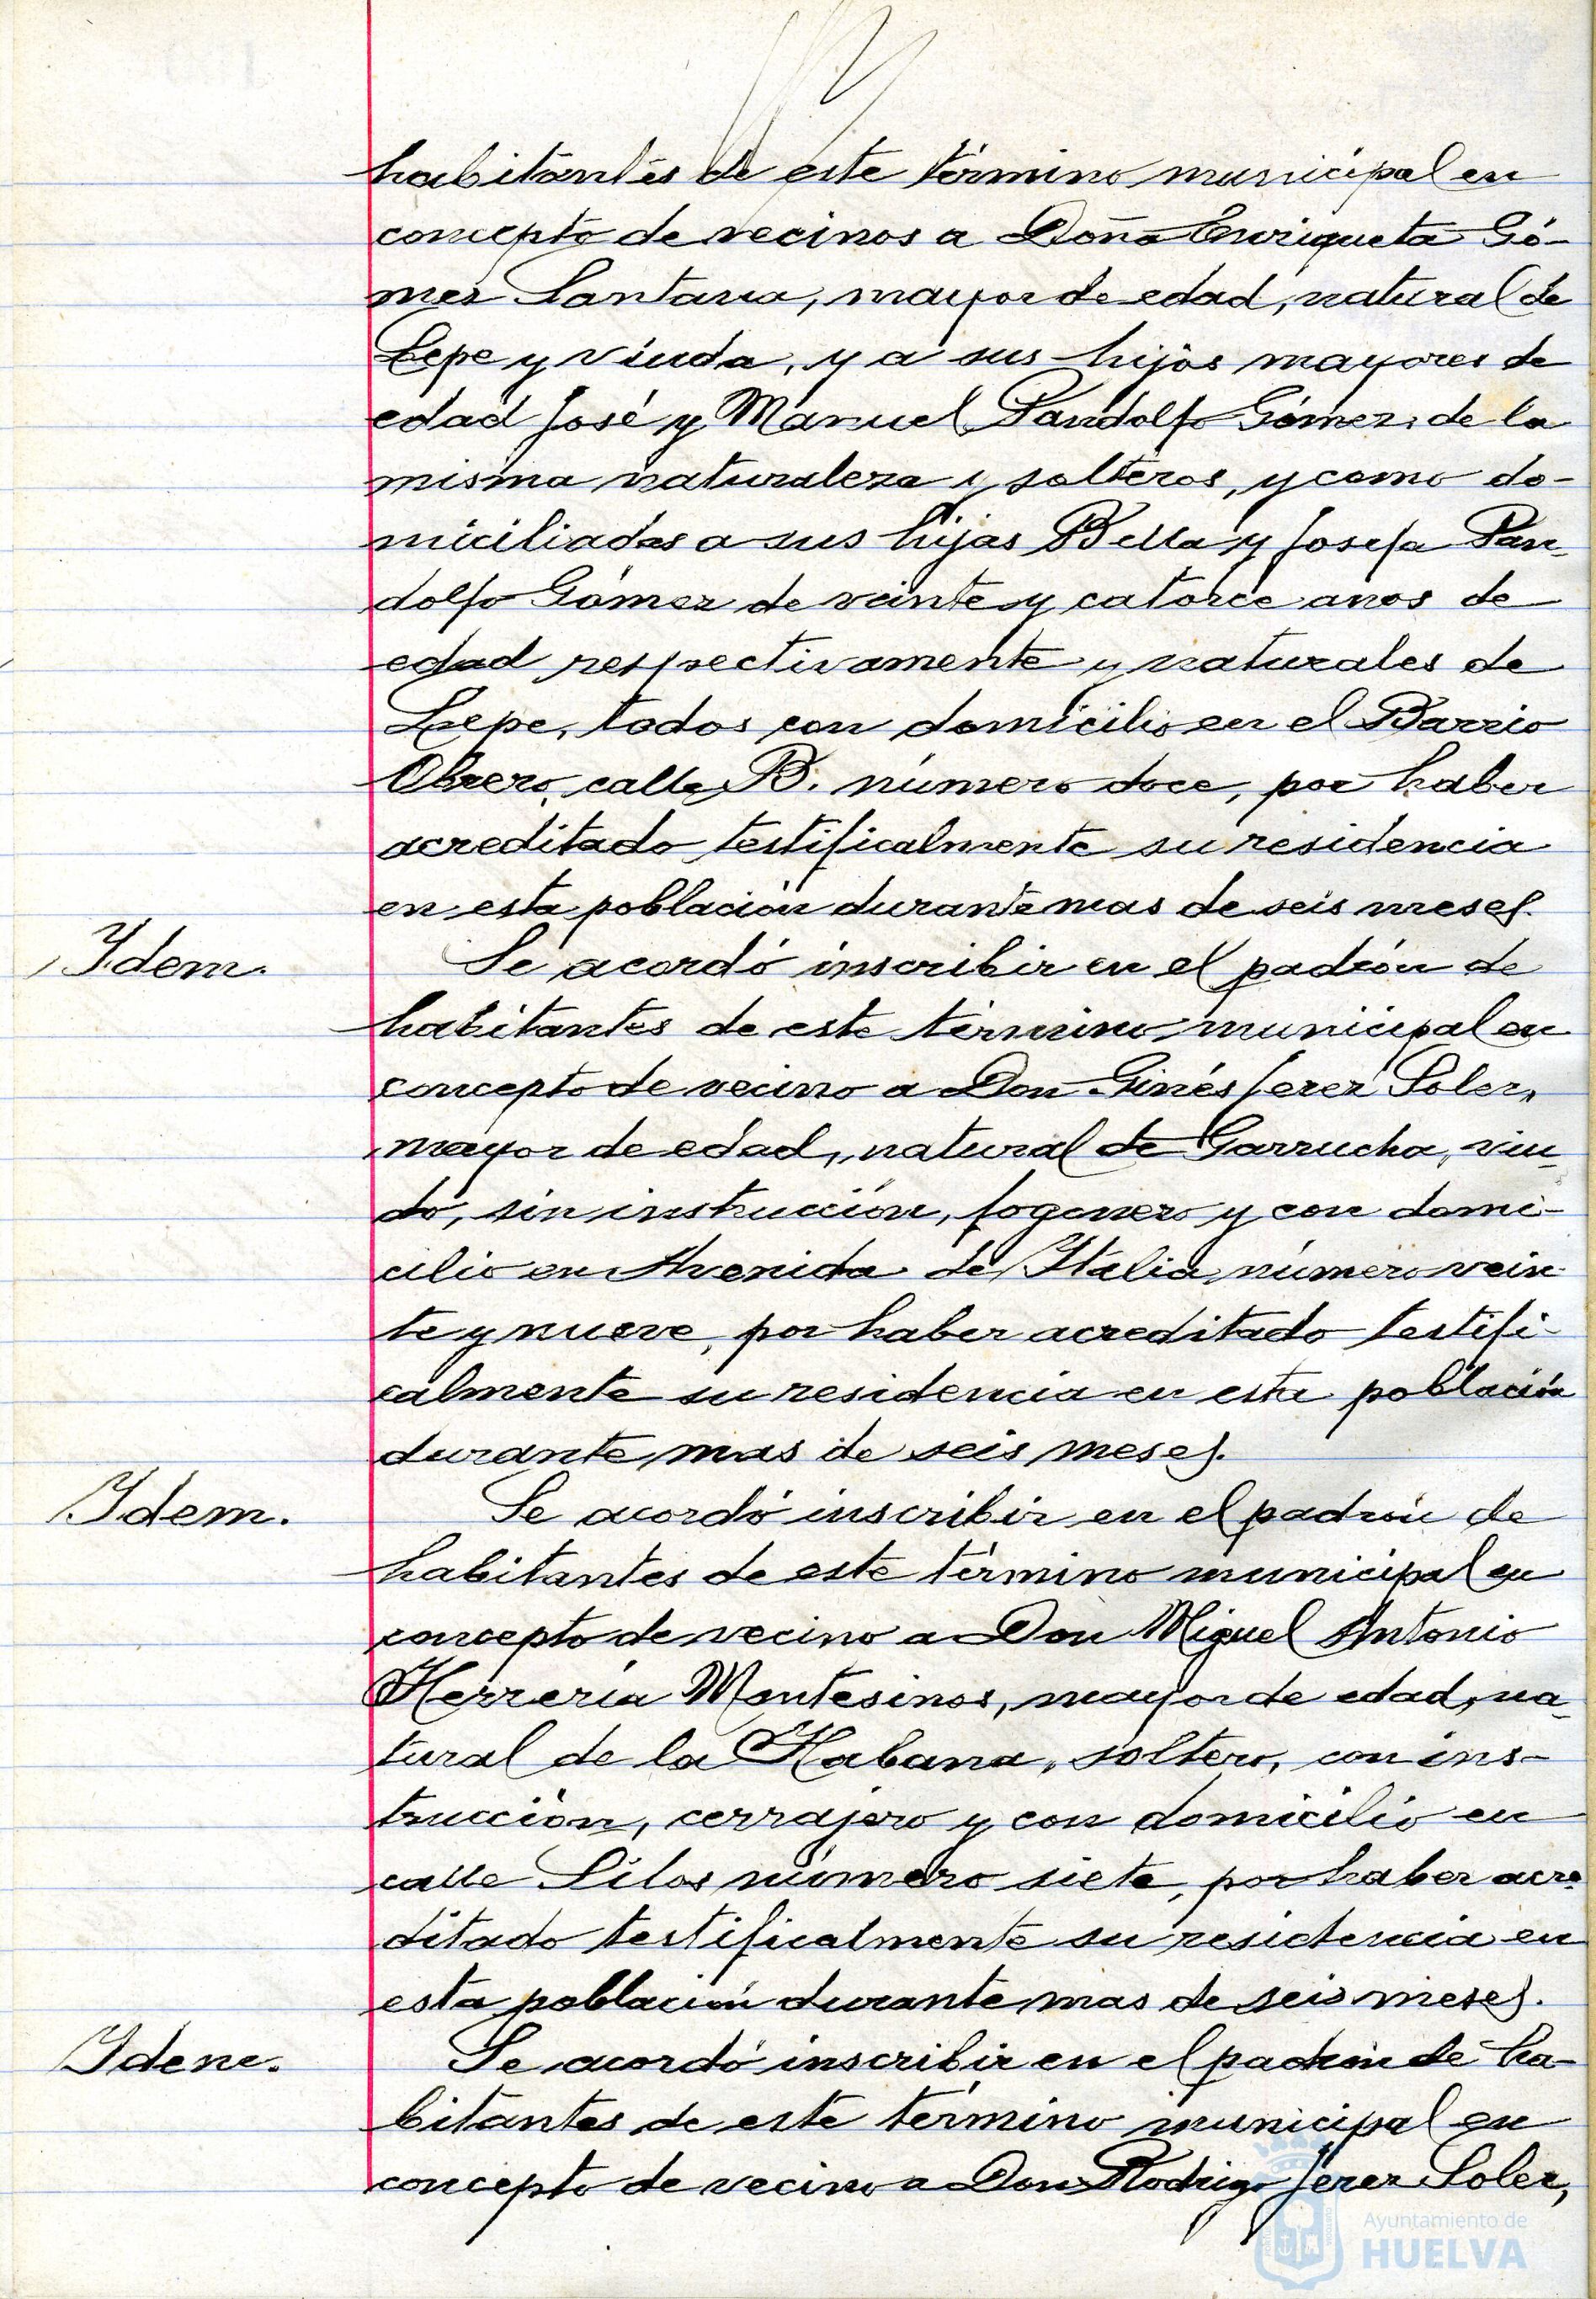 habitantes de este término municipal en
concepto de vecinos a Doña Enriqueta Gó-
mez Santana, mayor de edad, natural de
Lepe y viuda, y a sus hijos mayores de
edad José y Manuel Pandolfo Gómez, de la
misma naturaleza y solteros, y como do-
miciliadas a sus hijas Bella y Josefa Pan-
dolfo Gómez de veinte y catorce anos de
edad respectivamente y naturales de
Lepe, todos con domicilio en el Barrio
Obrero, calle B. número doce, por haber
acreditado testificalmente su residencia
en esta población durante mas de seis meses.
Idem.
Se acordó inscribir en el padrón de
habitantes de este término municipal en
concepto de vecino a Don Ginés Jerez Soler,
mayor de edad, natural de Garrucha, viu-
do, sin instrucción, fogonero y con domi-
cilio en Avenida de Italia, número vein
te y nueve, por haber acreditado testifi-
calmente su residencia en esta población
durante mas de seis meses.
Idem.
Se acordó inscribir en el padrón de
habitantes de este término municipal en
concepto de vecino a Don Miguel Antonio
Herrería Montesinos, mayor de edad, na-
tural de la Habana, soltero, con ins-
trucción, cerrajero y con domicilio en
calle Silos número siete, por haber acre
ditado testificalmente su residencia en
esta población durante mas de seis meses.
Idem.
Se acordó inscribir en el padrón de ha-
bitantes de este término municipal en
concepto de vecino a Don Rodrigo Jerez Soler,
Ayuntamiento de
HUELVA